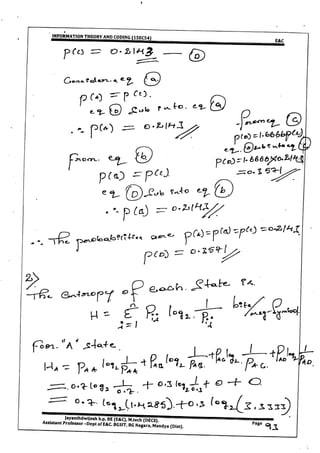 INFORMATION THEORY AND CODING (15EC54)
EAC
P(C) = 0.2143 — (D)
Consider eq (a)
P(A) = P(C).
eq (D) Sub into eq (a)
∴ P(A) = 0.2143 //
from eq (c)
P(D) = 1.6666 P(C)
eq (D) sub into eq (c)
P(D) = 1.6666 × 0.2143
= 0.3571 //
from eq (b)
P(B) = P(C)
eq (D) Sub into eq (b)
∴ P(B) = 0.2143 //
∴ The probabilities are P(A) = P(B) = P(C) = 0.2143
P(D) = 0.3571 //
2)
The Entropy of each State is
H = Σ i=1 Pij log2 1/Pij bits/msg-symbol
for "A" state.
HA = PAA log2 1/PAA + PAB log2 1/PAB + PAC log2 1/PAC + PAD log2 1/PAD
= 0.7 log2 1/0.7 + 0.3 log2 1/0.3 + 0 + 0
= 0.7 log2 (1.4285) + 0.3 log2 (3.3333)
Assistant Professor -Dept of EAC, BGSIT, BG Nagara, Mandya (Dist).
Page 93